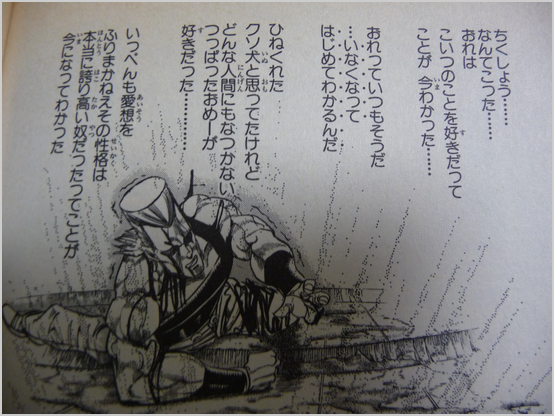 ちくしょう……
なんてこった……
おれは
こいつのことを好きだって
ことが 今わかった……
おれっていつもそうだ
…いなくなって
はじめてわかるんだ
ひねくれた
クソ犬と思ってたけれど
どんな人間にもなつかない
つっぱったおめーが
好きだった………
いっぺんも愛想を
ふりまかねえその性格は
本当に誇り高い奴だったってことが
今になってわかった